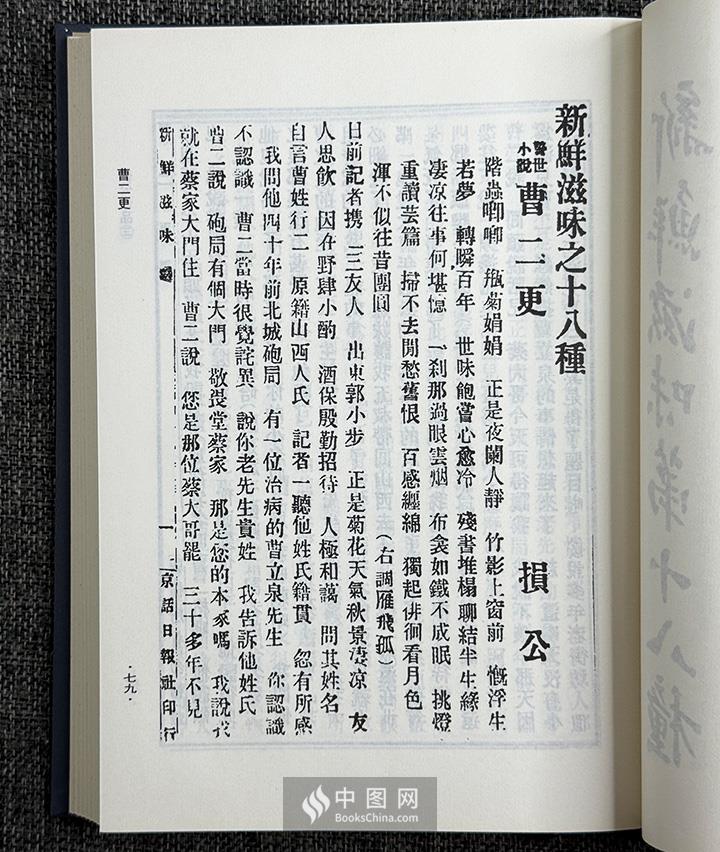 新鮮滋味之十八種
警世小說 曹二更 損公
階蟲唧唧 瓶菊娟娟 正是夜闌人靜 竹影上窗前 慨浮生
若夢 轉瞬百年 世味飽嘗心愈冷 殘書堆榻聊結半生緣
淒凉往事何堪憶 一刹那過眼雲烟 布衾如鐵不成眠 挑燈
重讀芸篇 掃不去閒愁舊恨 百感纏綿 獨起俳徊看月色
渾不似往昔團圓（右調雁飛孤）
日前記者携二三友人 出東郭小步 正是菊花天氣秋景淒凉 友
人思飲 因在野肆小酌 酒保殷勤招待 人極和藹 問其姓名
自言曹姓行二 原籍山西人氏 記者一聽他姓氏籍貫 忽有所感
我問他四十年前北城砲局 有一位治病的曹立泉先生 你認識
不認識 曹二當時很覺詫異 說你老先生貴姓 我告訴他姓氏
曹二說 砲局有個大門 敬畏堂蔡家 那是您的本家嗎 我說我
就在蔡家大門住 曹二說 您是那位蔡大哥罷 三十多年不見
新鮮滋味 一 京話日報社印行
曹二更
·七九·
中图网
BooksChina.com